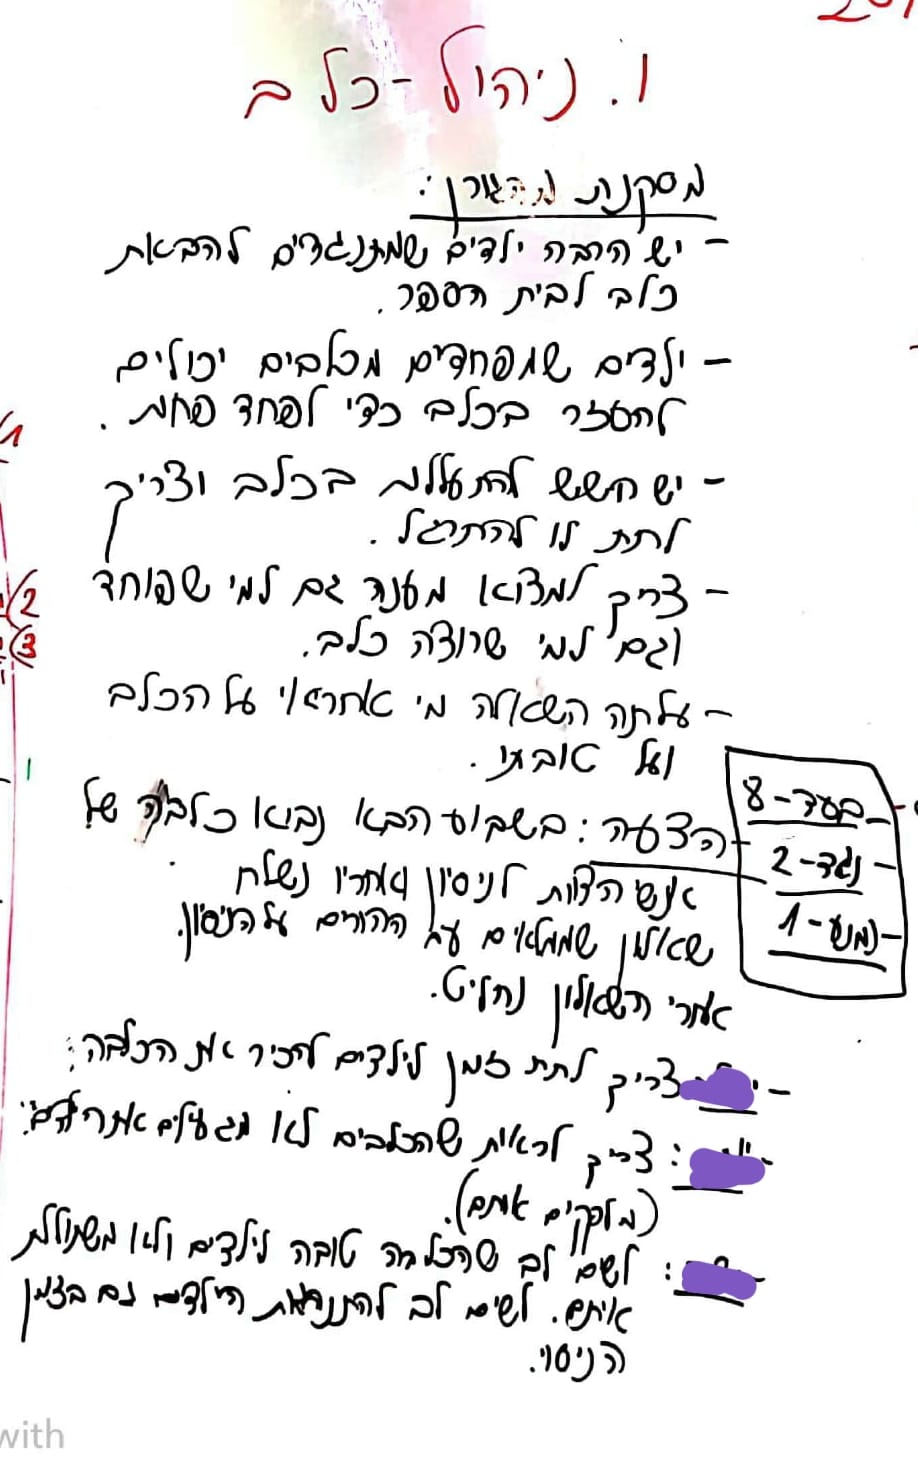 1. ניהול-כלב
מסקנות מהגורן:
- יש הרבה ילדים שמתנגדים להבאת
כלב לבית הספר.
- ילדים שמפחדים מכלבים יכולים
להעזר בכלב כדי לפחד פחות.
- יש חשש להתעללות בכלב וצריך
לתת לו להתרגל.
- צריך למצוא מענה גם למי שפוחד
וגם למי שרוצה כלב.
- עלתה השאלה מי אחראי על הכלב
ועל טובתו.
- הצעה: בשבוע הבא נביא כלבה של
אנש הצוות לניסיון ואחריו נשלח
שאלון שממלאים עם ההורים על הניסיון.
אחרי השאלון נחליט.
- בעד-8
- נגד-2
- נמנע-1
- צריך לתת זמן לילדים להכיר את הכלבה.
- : צריך לראות שהכלבים לא מגעילים את הילדים.
(מלקקים אותם).
: לשים לב שהכלבה טובה לילדים ולא משתוללת
איתם. לשים לב להתנהגות הילדים גם בזמן
הניסוי.
with